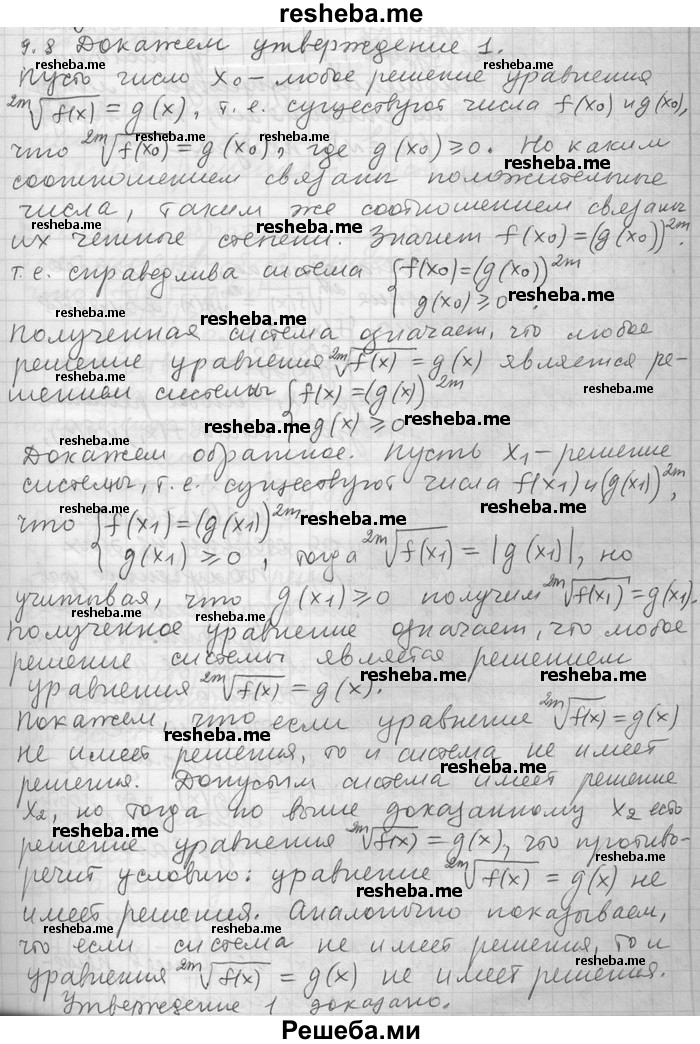 resheba.me
9.8 Докажем утверждение 1.
Пусть число x₀ – любое решение уравнения
²ᵐ√f(x) = g(x), т.е. существуют числа f(x₀) и g(x₀),
что ²ᵐ√f(x₀) = g(x₀), где g(x₀) ≥ 0. Но каким
соотношением связаны положительные
числа, таким же соотношением связаны
их четные степени. Значит f(x₀) = (g(x₀))²ᵐ.
т.е. справедлива система { f(x₀) = (g(x₀))²ᵐ
g(x₀) ≥ 0 .
Полученная система означает, что любое
решение уравнения ²ᵐ√f(x) = g(x) является ре-
шением системы { f(x) = (g(x))²ᵐ
g(x) ≥ 0
Докажем обратное. Пусть x₁ – решение
системы, т.е. существуют числа f(x₁) и (g(x₁))²ᵐ,
что { f(x₁) = (g(x₁))²ᵐ
g(x₁) ≥ 0 , тогда ²ᵐ√f(x₁) = |g(x₁)|, но
учитывая, что g(x₁) ≥ 0 получим ²ᵐ√f(x₁) = g(x₁).
Полученное уравнение означает, что любое
решение системы является решением
уравнения ²ᵐ√f(x) = g(x).
Покажем, что если уравнение ²ᵐ√f(x) = g(x)
не имеет решения, то и система не имеет
решения. Допустим система имеет решение
x₂, но тогда по выше доказанному x₂ есть
решение уравнения ²ᵐ√f(x) = g(x), что противо-
речит условию: уравнение ²ᵐ√f(x) = g(x) не
имеет решения. Аналогично показываем,
что если система не имеет решения, то и
уравнения ²ᵐ√f(x) = g(x) не имеет решения.
Утверждение 1 доказано.
Решеба.ми